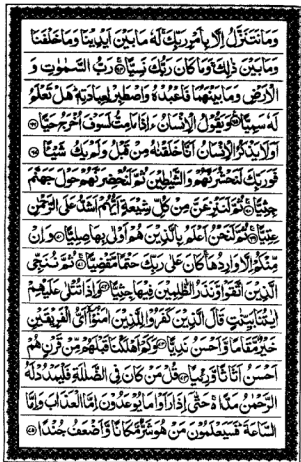 وَمَا نَتَنَزَّلُ إِلَّا بِأَمْرِ رَبِّكَ لَهُ مَا بَيْنَ أَيْدِينَا وَمَا خَلْفَنَا
وَمَا بَيْنَ ذَلِكَ وَمَا كَانَ رَبُّكَ نَسِيًّا ۝ رَبُّ السَّمٰوٰتِ وَ
الْأَرْضِ وَمَا بَيْنَهُمَا فَاعْبُدْهُ وَاصْطَبِرْ لِعِبَادَتِهِ هَلْ تَعْلَمُ
لَهُ سَمِيًّا ۝ وَيَقُولُ الْإِنْسَانُ ءَإِذَا مَا مِتُّ لَسَوْفَ أُخْرَجُ حَيًّا ۝
أَوَلَا يَذْكُرُ الْإِنْسَانُ أَنَّا خَلَقْنٰهُ مِنْ قَبْلُ وَلَمْ يَكُ شَيْئًا ۝
فَوَرَبِّكَ لَنَحْشُرَنَّهُمْ وَالشَّيٰطِينَ ثُمَّ لَنُحْضِرَنَّهُمْ حَوْلَ جَهَنَّمَ
جِثِيًّا ۝ ثُمَّ لَنَنْزِعَنَّ مِنْ كُلِّ شِيعَةٍ أَيُّهُمْ أَشَدُّ عَلَى الرَّحْمٰنِ
عِتِيًّا ۝ ثُمَّ لَنَحْنُ أَعْلَمُ بِالَّذِينَ هُمْ أَوْلَى بِهَا صِلِيًّا ۝ وَإِنْ
مِنْكُمْ إِلَّا وَارِدُهَا كَانَ عَلَى رَبِّكَ حَتْمًا مَقْضِيًّا ۝ ثُمَّ نُنَجِّي
الَّذِينَ اتَّقَوْا وَنَذَرُ الظّٰلِمِينَ فِيهَا جِثِيًّا ۝ وَإِذَا تُتْلَى عَلَيْهِمْ
اٰيٰتُنَا بَيِّنٰتٍ قَالَ الَّذِينَ كَفَرُوا لِلَّذِينَ اٰمَنُوا أَيُّ الْفَرِيقَيْنِ
خَيْرٌ مَقَامًا وَأَحْسَنُ نَدِيًّا ۝ وَكَمْ أَهْلَكْنَا قَبْلَهُمْ مِنْ قَرْنٍ هُمْ
أَحْسَنُ أَثَاثًا وَرِءْيًا ۝ قُلْ مَنْ كَانَ فِي الضَّلٰلَةِ فَلْيَمْدُدْ لَهُ
الرَّحْمٰنُ مَدًّا حَتَّى إِذَا رَأَوْا مَا يُوعَدُونَ إِمَّا الْعَذَابَ وَإِمَّا
السَّاعَةَ فَسَيَعْلَمُونَ مَنْ هُوَ شَرٌّ مَكَانًا وَأَضْعَفُ جُنْدًا ۝